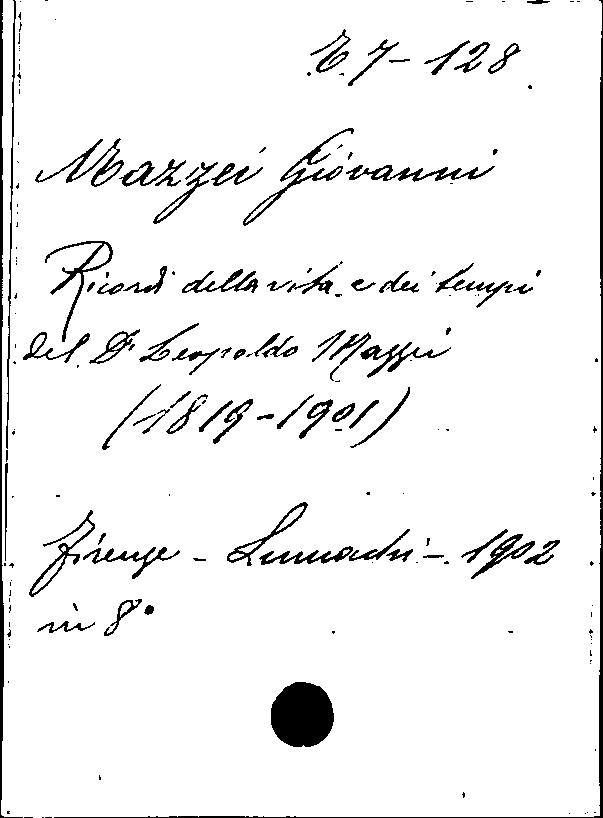 E. 7 - 128
Mazzei Giovanni
Ricordi della vita e dei tempi
del Dr Leopoldo Mazzei
(1819-1901)
Firenze - Lumachi - 1902
in 8°